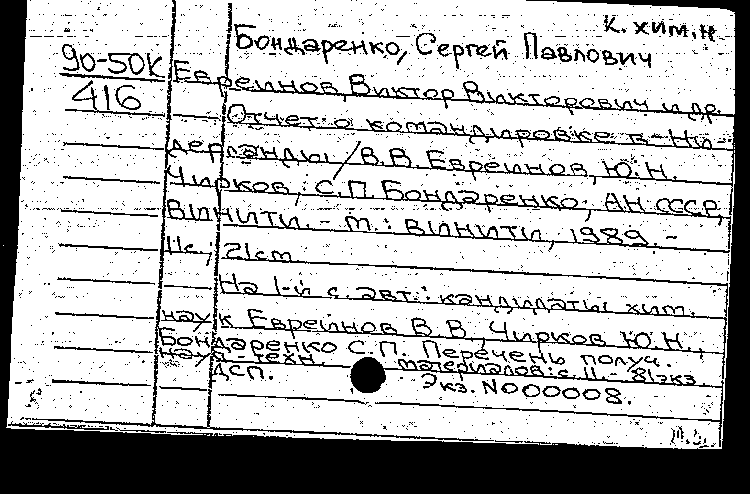 К. хим. н
Бондаренко, Сергей Павлович
90-50К Евреинов, Виктор Викторович и др
416 Отчет о командировке в Ни-
дерланды / В.В. Евреинов, Ю.Н.
Чирков, С.П. Бондаренко; АН СССР,
ВИНИТИ. - М.: ВИНИТИ, 1989. -
11с.; 21см
На 1-й с. авт.: кандидаты хим.
наук Евреинов В.В., Чирков Ю.Н.,
Бондаренко С.П. Перечень получ.
науч-техн. материалов: с. 11. - 81экз.
ДСП. Экз. N000008.